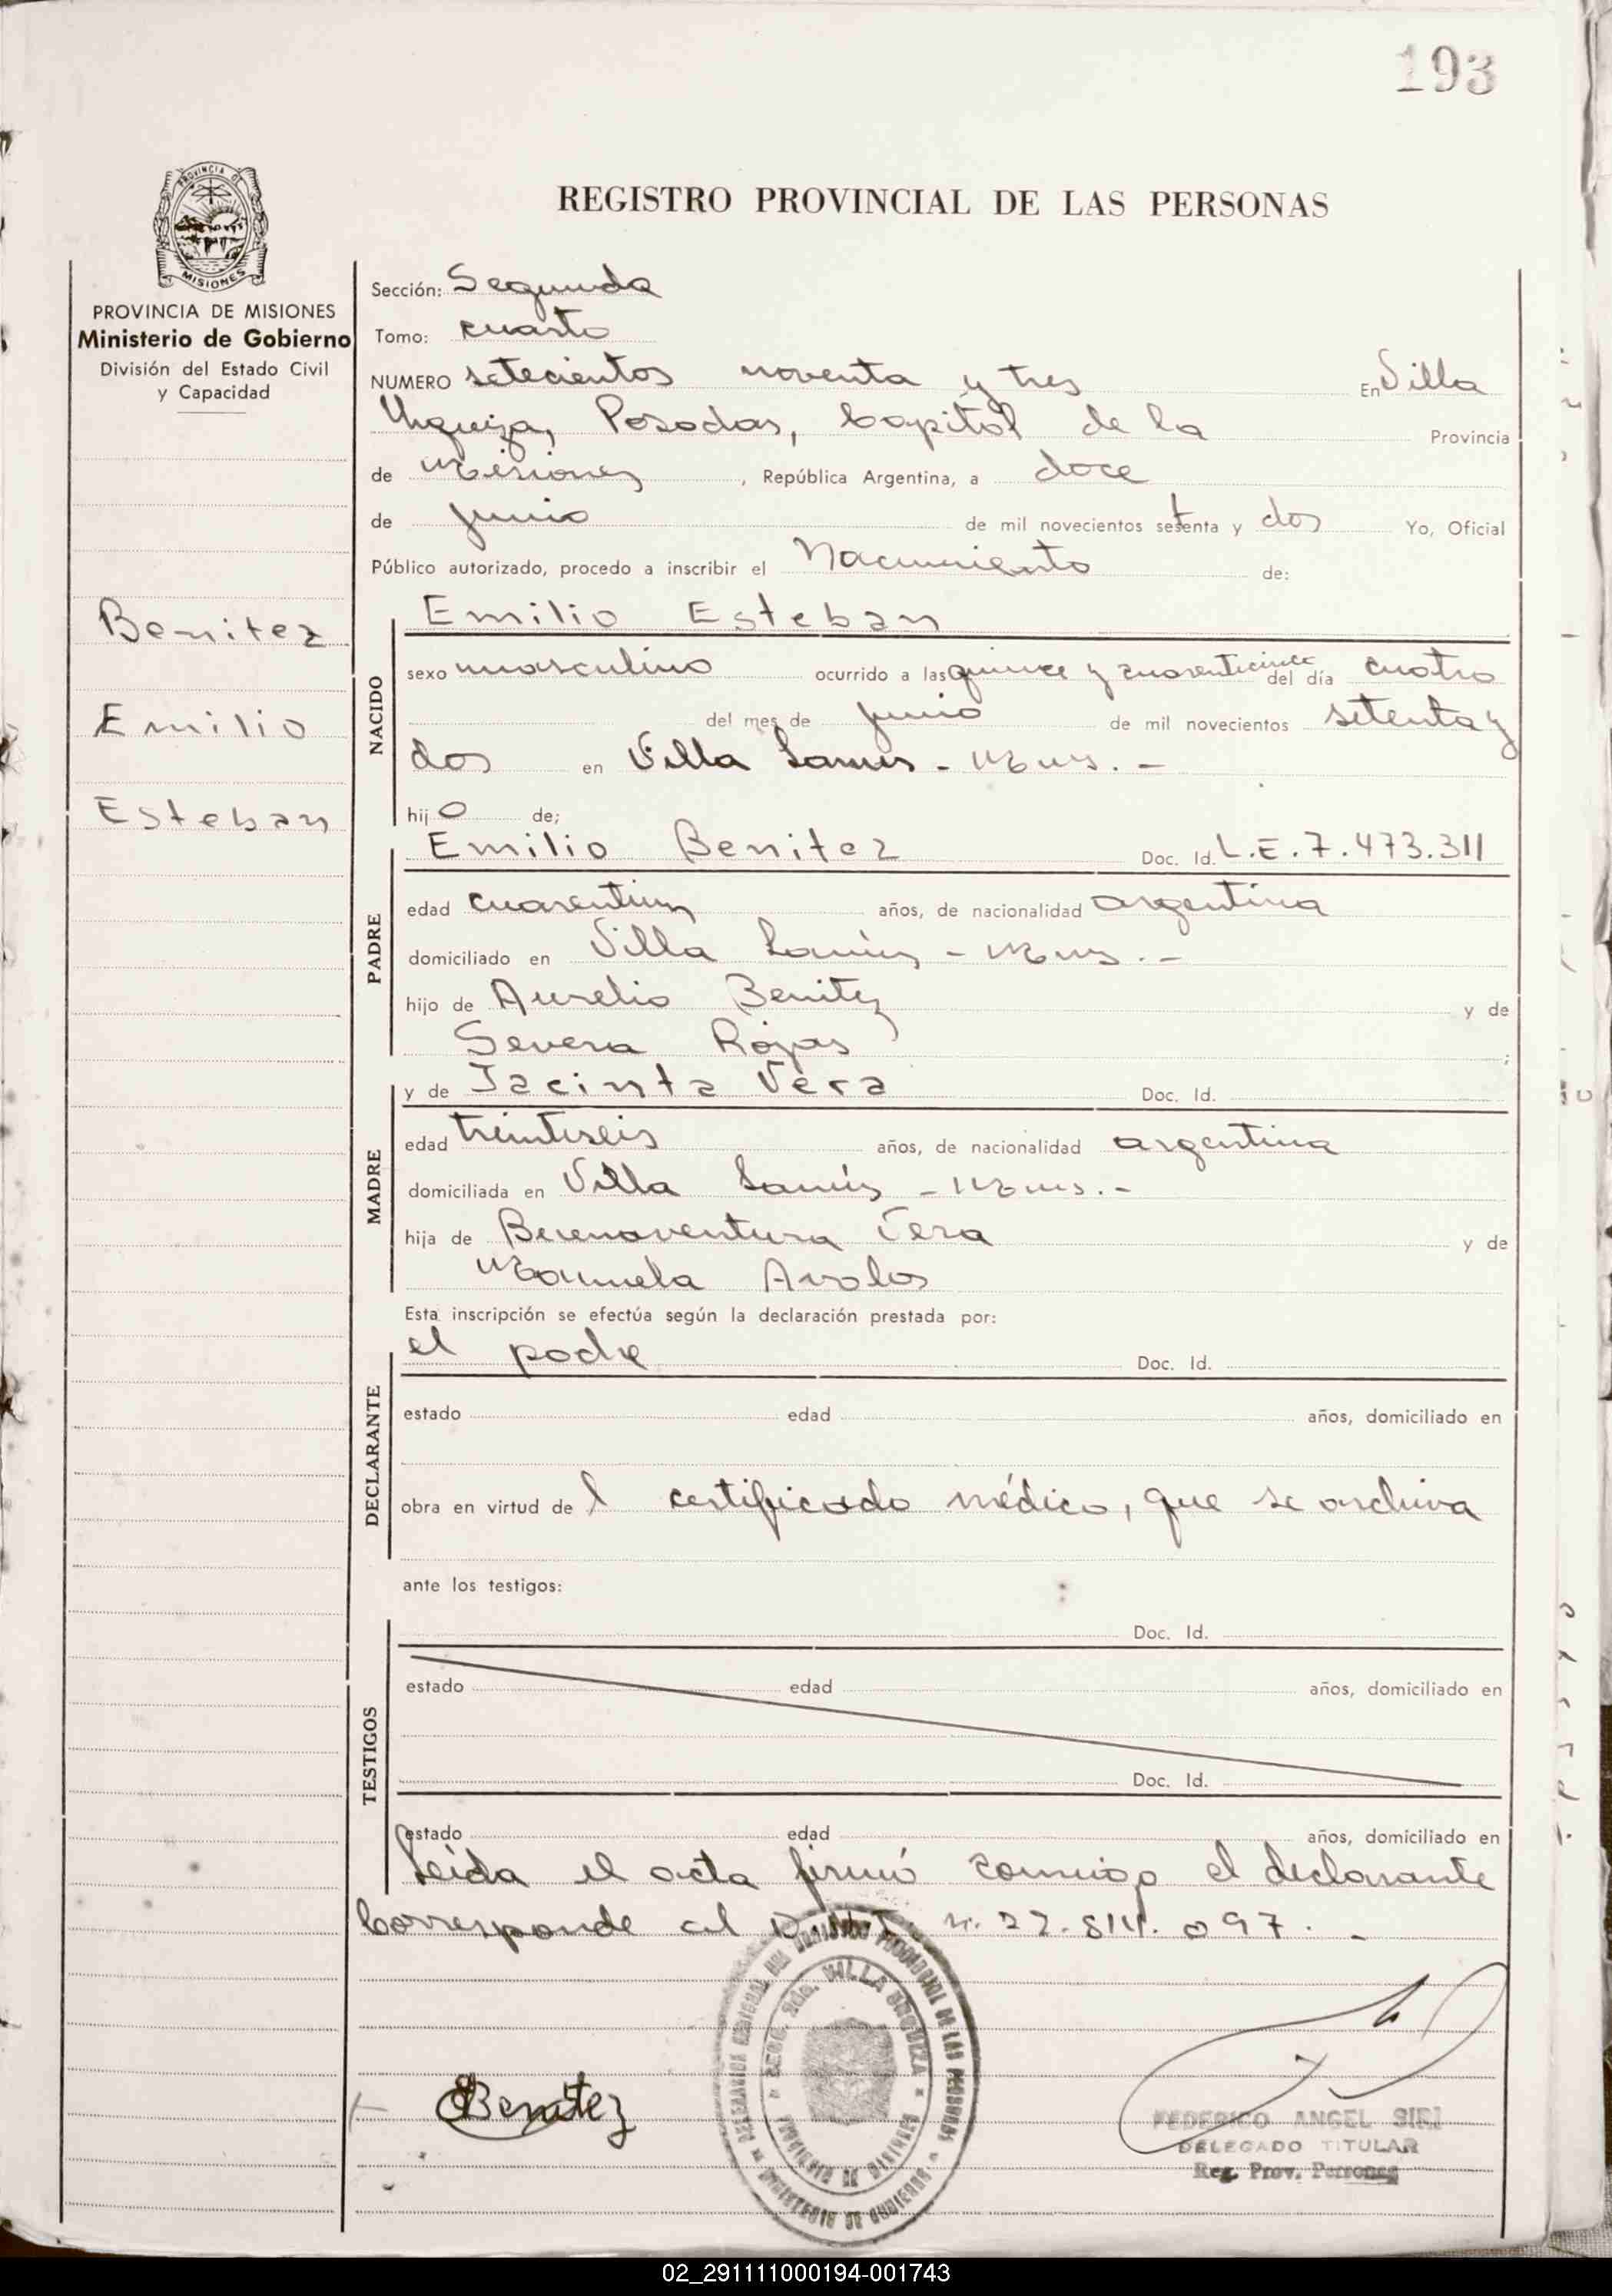 193
REGISTRO PROVINCIAL DE LAS PERSONAS
PROVINCIA DE MISIONES
Ministerio de Gobierno
División del Estado Civil
y Capacidad
Benitez
Emilio
Esteban
Sección: Segunda
Tomo: cuarto
NUMERO setecientos noventa y tres En Villa
Urquiza, Posadas, Capital de la Provincia
de Misiones, República Argentina, a doce
de junio de mil novecientos setenta y dos Yo, Oficial
Público autorizado, procedo a inscribir el Nacimiento de:
NACIDO
Emilio Esteban
sexo masculino ocurrido a las quince y cuarenticinco del día cuatro
del mes de junio de mil novecientos setenta y
dos en Villa Lanús - Mnes. -
hijo de;
PADRE
Emilio Benitez Doc. Id. L.E. 7.473.311
edad cuarentiun años, de nacionalidad argentina
domiciliado en Villa Lanús - Mnes. -
hijo de Aurelio Benitez y de
Severa Rojas ;
MADRE
y de Jacinta Vera Doc. Id.
edad treintiseis años, de nacionalidad argentina
domiciliada en Villa Lanús - Mnes. -
hija de Buenaventura Vera y de
Manuela Avalos
Esta inscripción se efectúa según la declaración prestada por:
DECLARANTE
el padre Doc. Id.
estado edad años, domiciliado en
obra en virtud del certificado médico, que se archiva
ante los testigos:
TESTIGOS
Doc. Id.
estado edad años, domiciliado en
Doc. Id.
estado edad años, domiciliado en
Leída el acta firmó conmigo el declarante
Corresponde al n. 22.814.097. -
Benitez
SECC. 2da. VILLA URQUIZA
PROVINCIA DE MISIONES
MINISTERIO DE GOBIERNO
FEDERICO ANGEL SIRI
DELEGADO TITULAR
Reg. Prov. Personas
02_291111000194-001743